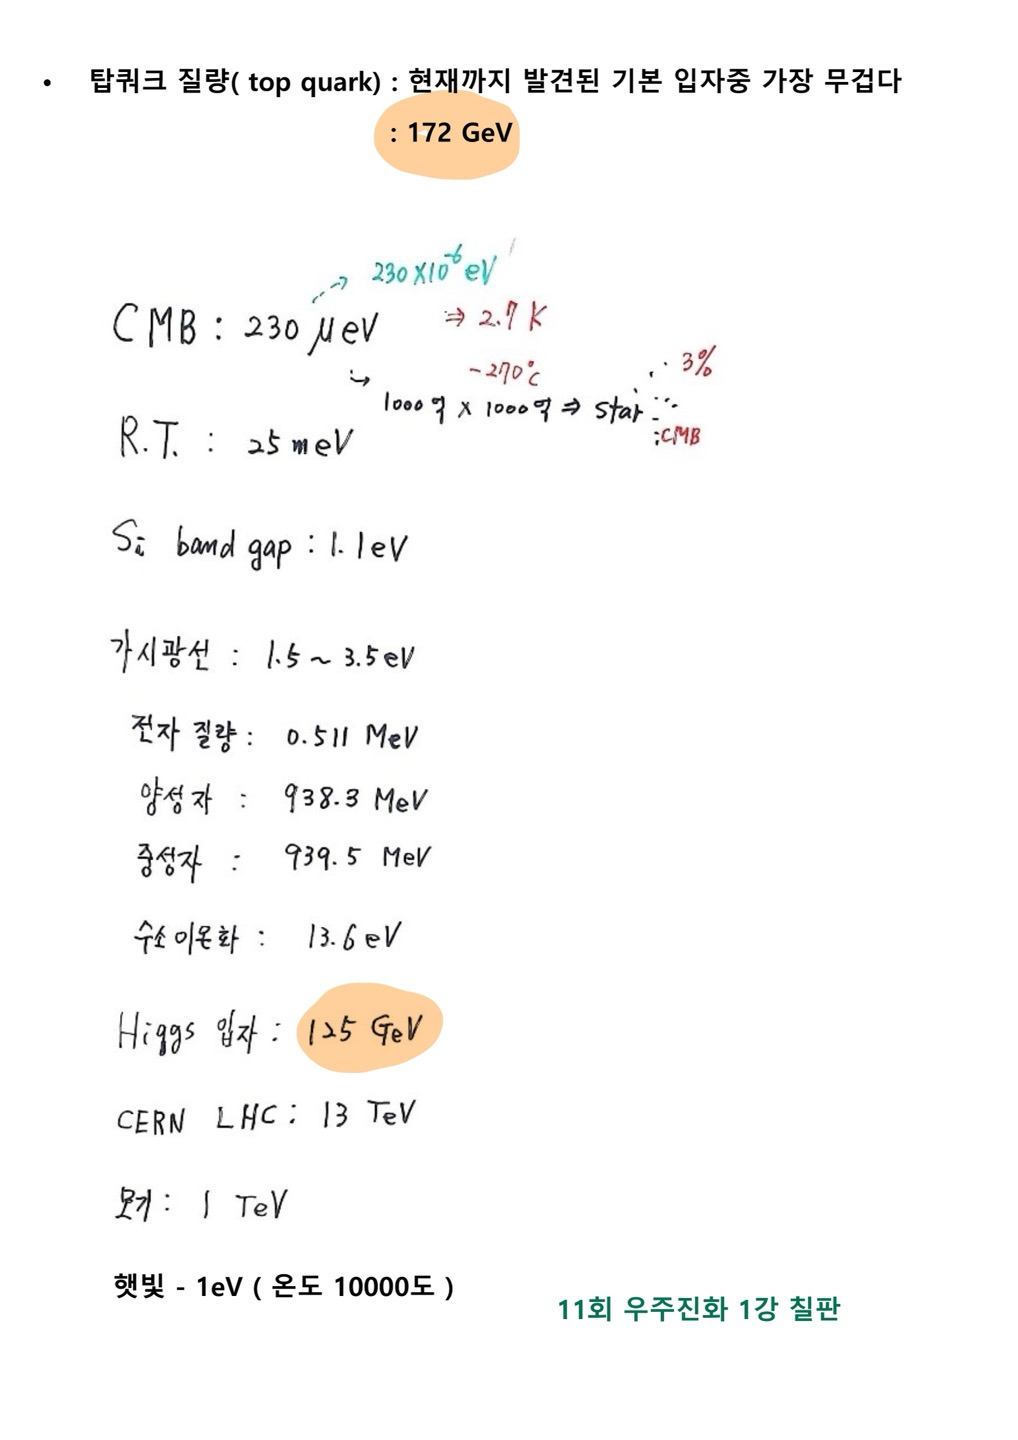 • 탑쿼크 질량( top quark) : 현재까지 발견된 기본 입자중 가장 무겁다
: 172 GeV
230 X10⁻⁶ eV
CMB : 230 μeV ⇒ 2.7 K
-270℃
3%
1000억 x 1000억 ⇒ star
CMB
R.T. : 25 meV
Si band gap : 1.1eV
가시광선 : 1.5 ~ 3.5eV
전자 질량 : 0.511 MeV
양성자 : 938.3 MeV
중성자 : 939.5 MeV
수소이온화 : 13.6 eV
Higgs 입자 : 125 GeV
CERN LHC : 13 TeV
모기 : 1 TeV
햇빛 - 1eV ( 온도 10000도 )
11회 우주진화 1강 칠판